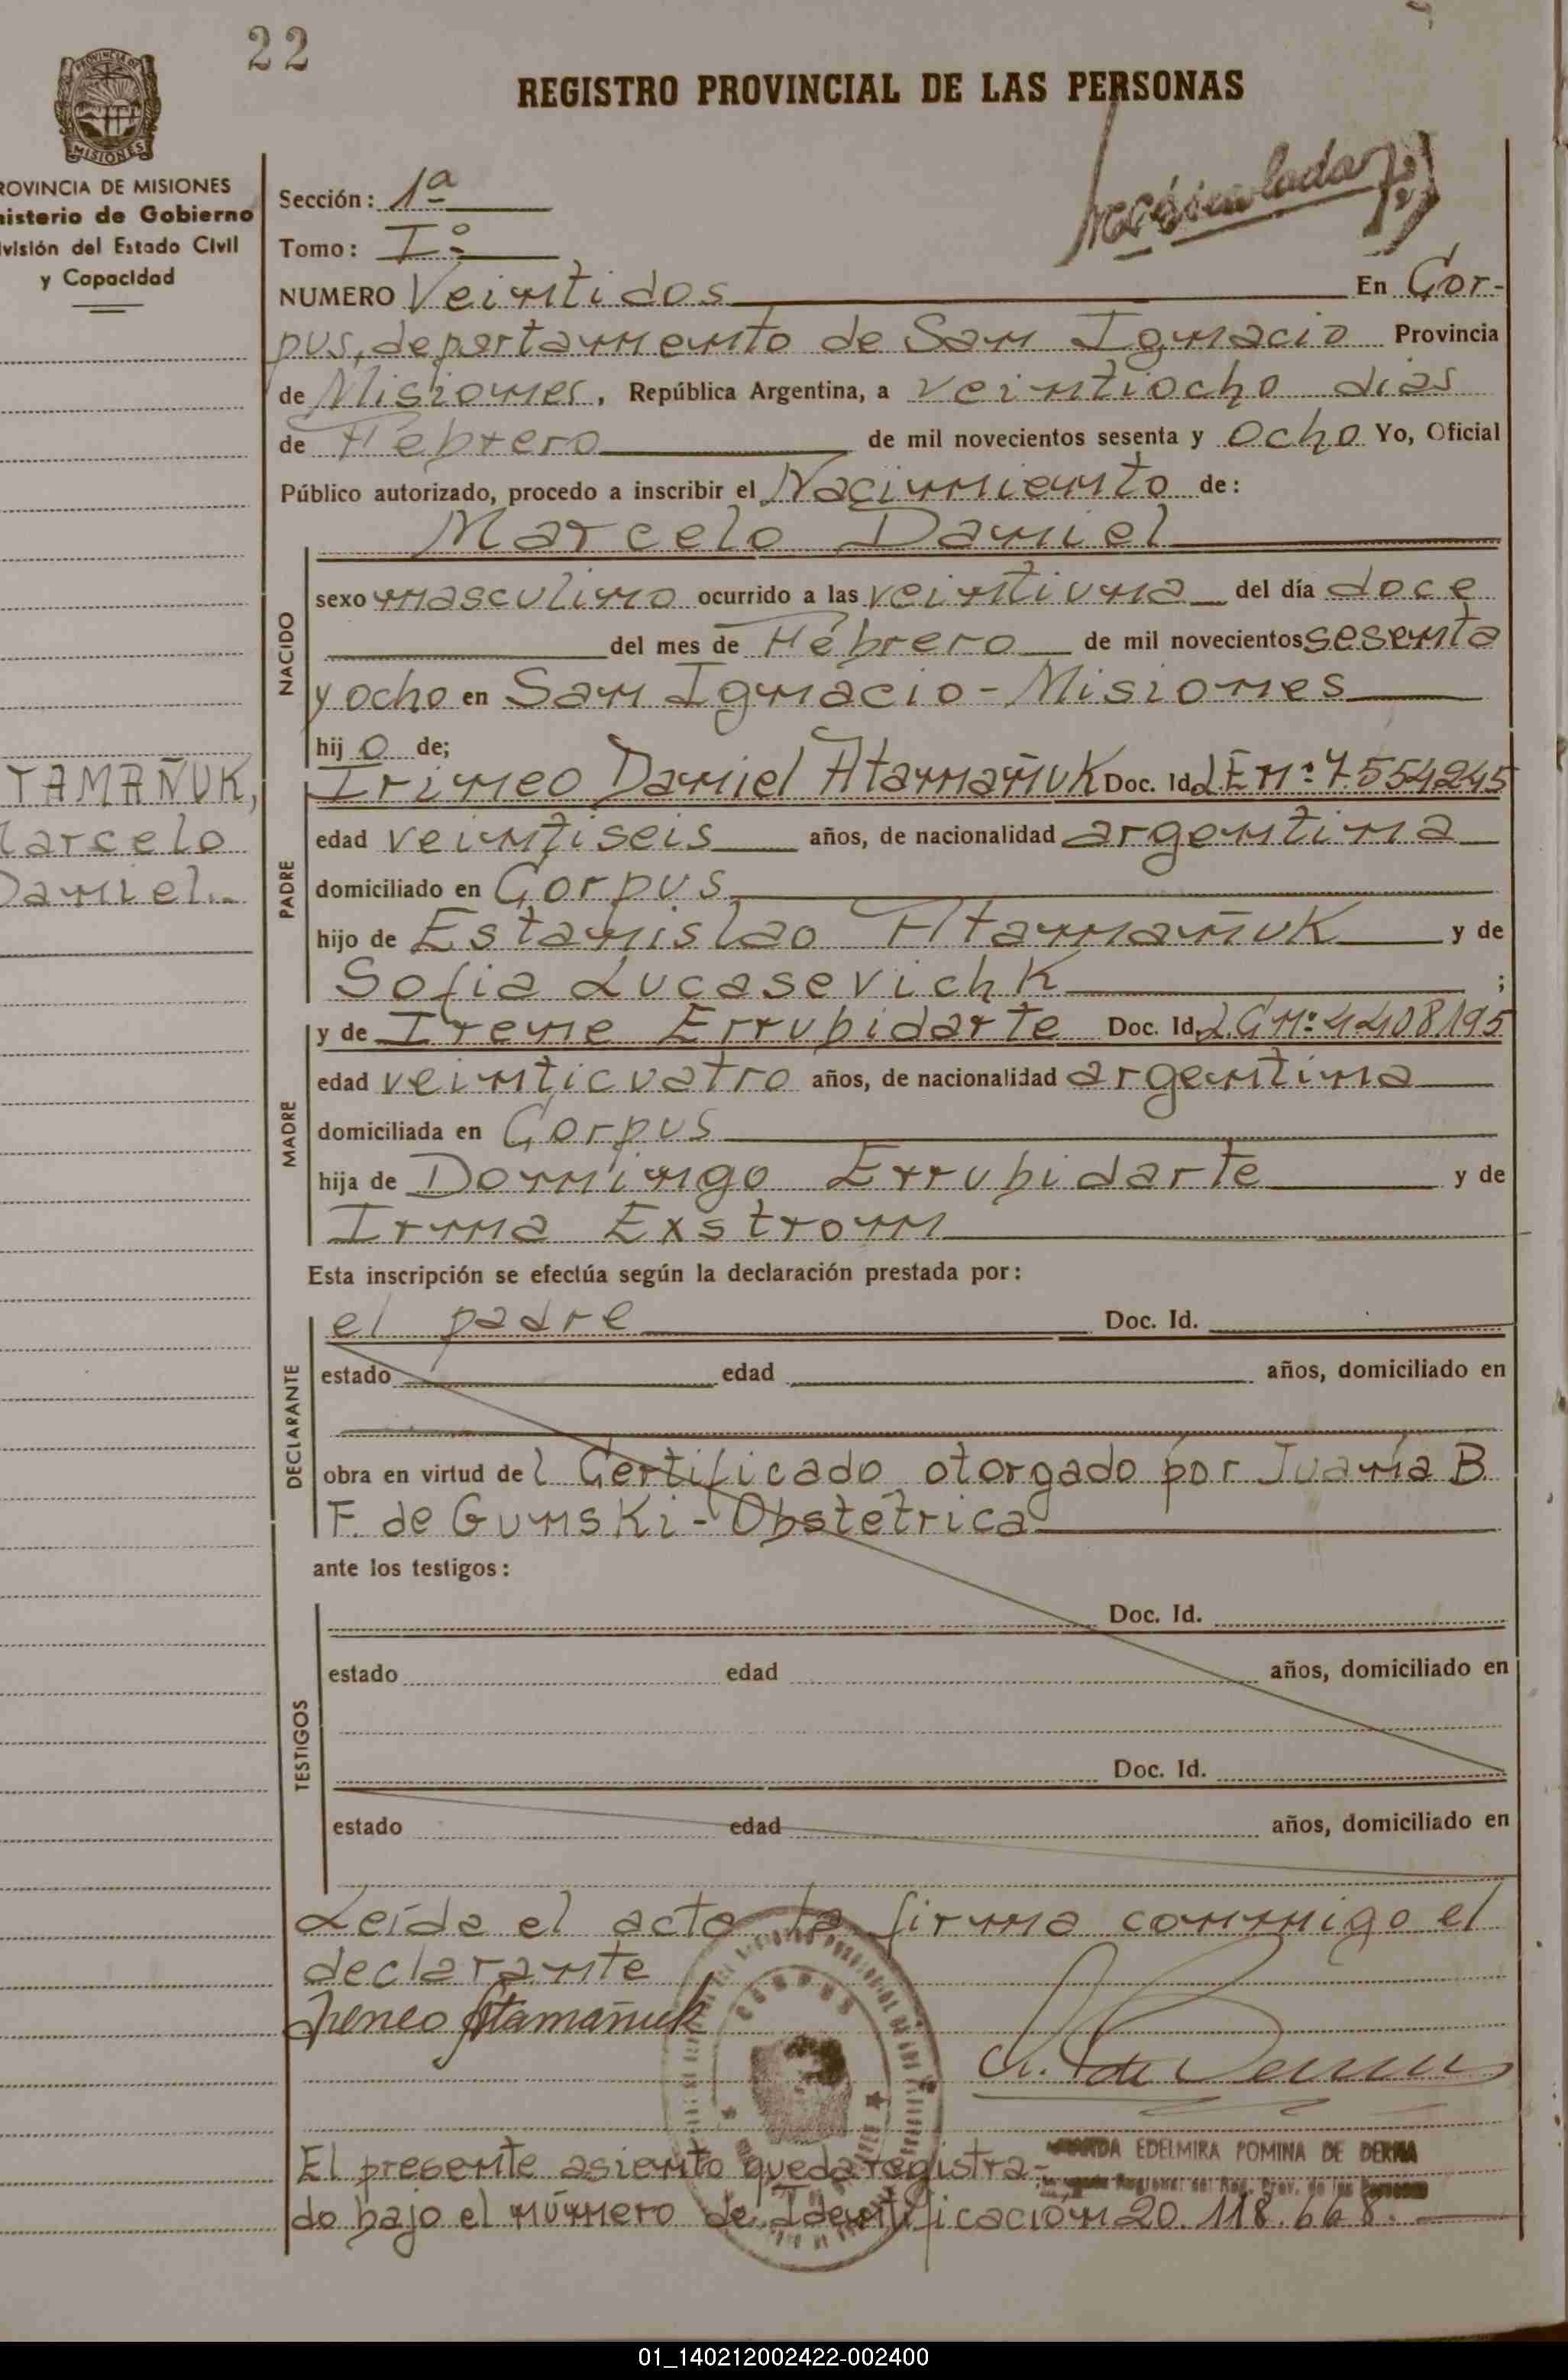 22
REGISTRO PROVINCIAL DE LAS PERSONAS
PROVINCIA DE
MISIONES
ROVINCIA DE MISIONES
nisterio de Gobierno
visión del Estado Civil
y Capacidad
Sección: 1ª
Tomo: Iº
NUMERO Veintidos En Cor-
pus, departamento de San Ignacio Provincia
de Misiones, República Argentina, a veintiocho dias
de Febrero de mil novecientos sesenta y ocho Yo, Oficial
Público autorizado, procedo a inscribir el Nacimiento de:
Marcelo Daniel
NACIDO
sexo masculino ocurrido a las veintiuna del día doce
del mes de Febrero de mil novecientos sesenta
y ocho en San Ignacio - Misiones
hijo de;
TAMAÑUK,
arcelo
Daniel.-
PADRE
Irineo Daniel Atamañuk Doc. Id. L.E nº 7.554245
edad veintiseis años, de nacionalidad argentina
domiciliado en Corpus
hijo de Estanislao Atamañuk y de
Sofia Lucasevichk ;
MADRE
y de Irene Errubidarte Doc. Id. L.C nº 4408195
edad veinticuatro años, de nacionalidad argentina
domiciliada en Corpus
hija de Domingo Errubidarte y de
Irma Exstrom
Esta inscripción se efectúa según la declaración prestada por:
DECLARANTE
el padre Doc. Id.
estado edad años, domiciliado en
obra en virtud del Certificado otorgado por Juana B.
F. de Gunski - Obstétrica
ante los testigos:
TESTIGOS
Doc. Id.
estado edad años, domiciliado en
Doc. Id.
estado edad años, domiciliado en
Leída el acta, la firma conmigo el
declarante
Ireneo Atamañuk
CORPUS
EDELMIRA POMINA DE DERNA
Reg. Prov. de las Personas
El presente asiento queda registra-
do bajo el número de Identificación 20.118.668.
01_140212002422-002400